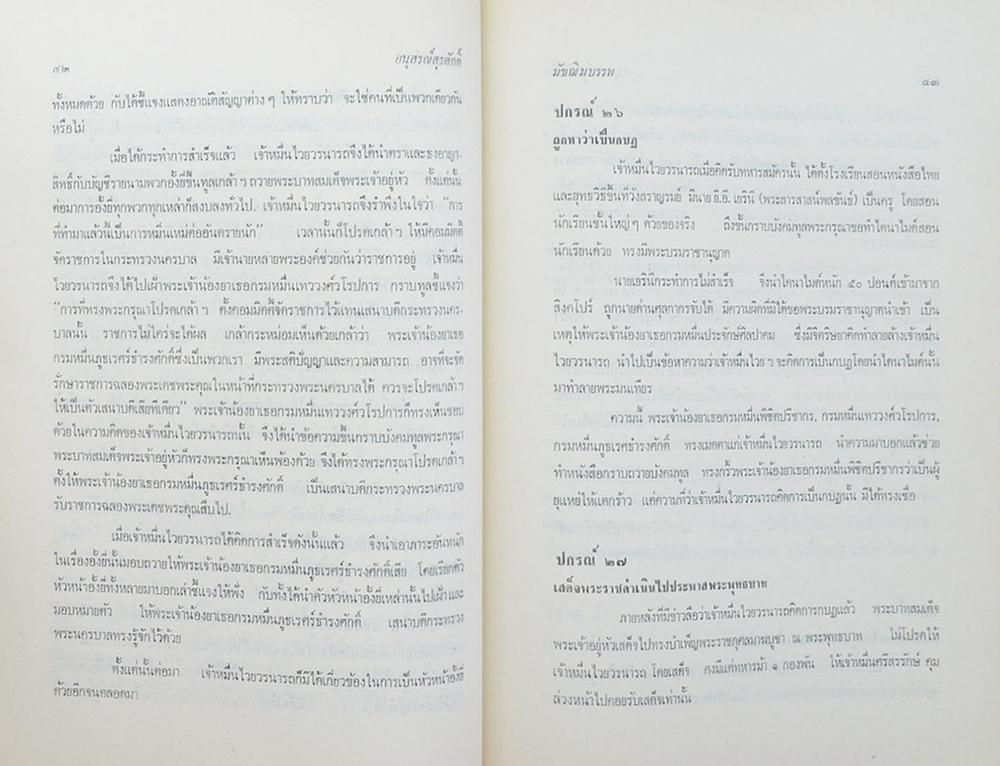 ๔๒
อนุสรณ์สุรศักดิ์
ทั้งหมดด้วย กับได้ชี้แจงแสดงอาณัติสัญญาต่าง ๆ ให้ทราบว่า จะใช่คนที่เป็นพวกเดียวกัน
หรือไม่
เมื่อได้กระทำการสำเร็จแล้ว เจ้าหมื่นไวยวรนารถจึงได้นำตราและธงอาญา-
สิทธิ์กับบัญชีรายนามพวกอั้งยี่ขึ้นทูลเกล้า ฯ ถวายพระบาทสมเด็จพระเจ้าอยู่หัว ตั้งแต่นั้น
ต่อมาการอั้งยี่ทุกพวกทุกเหล่าก็สงบลงทั่วไป. เจ้าหมื่นไวยวรนารถจึงรำพึงในใจว่า "การ
ที่ทำมาแล้วนี้เป็นการหมิ่นเหม่ต่ออันตรายนัก" เวลานั้นก็โปรดเกล้า ฯ ให้มีคอมมิตตี
จัดราชการในกระทรวงนครบาล มีเจ้านายหลายพระองค์ช่วยกันว่าราชการอยู่ เจ้าหมื่น
ไวยวรนารถจึงได้ไปเฝ้าพระเจ้าน้องยาเธอกรมหมื่นเทววงศ์วโรปการ กราบทูลชี้แจงว่า
"การที่ทรงพระกรุณาโปรดเกล้า ฯ ตั้งคอมมิตตีจัดราชการไว้แทนเสนาบดีกระทรวงนคร-
บาลนั้น ราชการไม่ใคร่จะได้ผล เกล้ากระหม่อมเห็นด้วยเกล้าว่า พระเจ้าน้องยาเธอ
กรมหมื่นภูธเรศร์ธำรงศักดิ์ซึ่งเป็นพวกเรา มีพระสติปัญญาและความสามารถ อาจที่จะจัด
รักษาราชการฉลองพระเดชพระคุณในหน้าที่กระทรวงพระนครบาลได้ ควรจะโปรดเกล้าฯ
ให้เป็นตัวเสนาบดีเสียทีเดียว" พระเจ้าน้องยาเธอกรมหมื่นเทววงศ์วโรปการก็ทรงเห็นชอบ
ด้วยในความคิดของเจ้าหมื่นไวยวรนารถนั้น จึงได้นำข้อความขึ้นกราบบังคมทูลพระกรุณา
พระบาทสมเด็จพระเจ้าอยู่หัวก็ทรงพระกรุณาเห็นพ้องด้วย จึงได้ทรงพระกรุณาโปรดเกล้าฯ
ตั้งให้พระเจ้าน้องยาเธอกรมหมื่นภูธเรศร์ธำรงศักดิ์ เป็นเสนาบดีกระทรวงพระนครบาล
รับราชการฉลองพระเดชพระคุณสืบไป.
เมื่อเจ้าหมื่นไวยวรนารถได้คิดการสำเร็จดังนั้นแล้ว จึงนำเอาภาระอันหนัก
ในเรื่องอั้งยี่นั้นมอบถวายให้พระเจ้าน้องยาเธอกรมหมื่นภูธเรศร์ธำรงศักดิ์เสีย โดยเรียกตัว
หัวหน้าอั้งยี่ทั้งหลายมาบอกเล่าชี้แจงให้ฟัง กับทั้งได้นำตัวหัวหน้าอั้งยี่เหล่านั้นไปเฝ้าและ
มอบหมายตัว ให้พระเจ้าน้องยาเธอกรมหมื่นภูธเรศร์ธำรงศักดิ์ เสนาบดีกระทรวง
พระนครบาลทรงรู้จักไว้ด้วย
ตั้งแต่นั้นต่อมา เจ้าหมื่นไวยวรนารถก็มิได้เกี่ยวข้องในการเป็นหัวหน้าอั้งยี่
ด้วยอีกจนตลอดมา
มัชฌิมบรรพ
๔๓
ปกรณ์ ๒๖
ถูกหาว่าเป็นกบฏ
เจ้าหมื่นไวยวรนารถเมื่อคิดรับทหารสมัครนั้น ได้ตั้งโรงเรียนสอนหนังสือไทย
และยุทธวิธีขึ้นที่วังสราญรมย์ มีนาย ยี.อี. เยรินี (พระสารสาสน์พลขันธ์) เป็นครู โดยสอน
นักเรียนชั้นใหญ่ ๆ ด้วยของจริง ถึงขึ้นกราบบังคมทูลพระกรุณาขอทำไดนาไมต์สอน
นักเรียนด้วย ทรงมีพระบรมราชานุญาต
นายเยรินีกระทำการไม่สำเร็จ จึงนำไดนาไมต์หนัก ๕๐ ปอนด์เข้ามาจาก
สิงคโปร์ ถูกนายด่านศุลกากรจับได้ มีความผิดที่มิได้ขอพระบรมราชานุญาตนำเข้า เป็น
เหตุให้พระเจ้าน้องยาเธอกรมหมื่นประจักษ์ศิลปาคม ซึ่งมีจิตริษยาคิดทำลายล้างเจ้าหมื่น
ไวยวรนารถ นำไปเป็นข้อหาความว่าเจ้าหมื่นไวย ฯ จะคิดการเป็นกบฏโดยนำไดนาไมต์นั้น
มาทำลายพระมนเทียร
ความนี้ พระเจ้าน้องยาเธอกรมหมื่นพิชิตปรีชากร, กรมหมื่นเทววงศ์วโรปการ,
กรมหมื่นภูธเรศธำรงศักดิ์ ทรงเมตตาแก่เจ้าหมื่นไวยวรนารถ นำความมาบอกแล้วช่วย
ทำหนังสือกราบถวายบังคมทูล ทรงกริ้วพระเจ้าน้องยาเธอกรมหมื่นพิชิตปรีชากรว่าเป็นผู้
ยุแหย่ให้แตกร้าว แต่ความที่ว่าเจ้าหมื่นไวยวรนารถคิดการเป็นกบฏนั้น มิได้ทรงเชื่อ
ปกรณ์ ๒๗
เสด็จพระราชดำเนินไปประพาสพระพุทธบาท
ภายหลังที่มีข่าวลือว่าเจ้าหมื่นไวยวรนารถคิดการกบฏแล้ว พระบาทสมเด็จ
พระเจ้าอยู่หัวเสด็จไปทรงบำเพ็ญพระราชกุศลมาฆบูชา ณ พระพุทธบาท ไม่โปรดให้
เจ้าหมื่นไวยวรนารถ โดยเสด็จ คงมีแต่ทหารม้า ๑ กองพัน ให้เจ้าหมื่นศรีสรรักษ์ คุม
ล่วงหน้าไปคอยรับเสด็จเท่านั้น